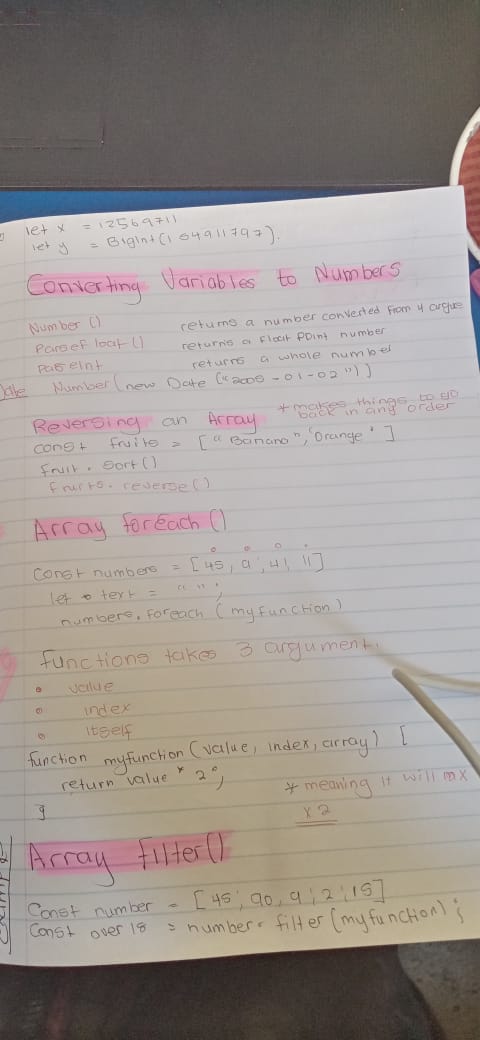 let x = 12569711
let y = BigInt(1 54911797).
Converting Variables to Numbers
Number () returns a number converted from 4 argue
Parsefloat () returns a float point number
ParseInt returns a whole number
Date Number (new Date ("2005-01-02")]
Reversing an Array * makes things to go back in any order
const fruits = ["Banana", 'Orange']
fruit. Sort()
fruits. reverse()
Array foreach ()
Const numbers = [45, 9; 41, 11]
let text = " ";
numbers. foreach (myfunction)
functions takes 3 argument.
• value
• index
• itself
function myfunction (value, index, array) [
return value * 2;
* meaning it will
x 2
Array filter()
Example 2
Const number = [45; 90, 9; 2; 18]
Const over 18 = number. filter (myfunction);